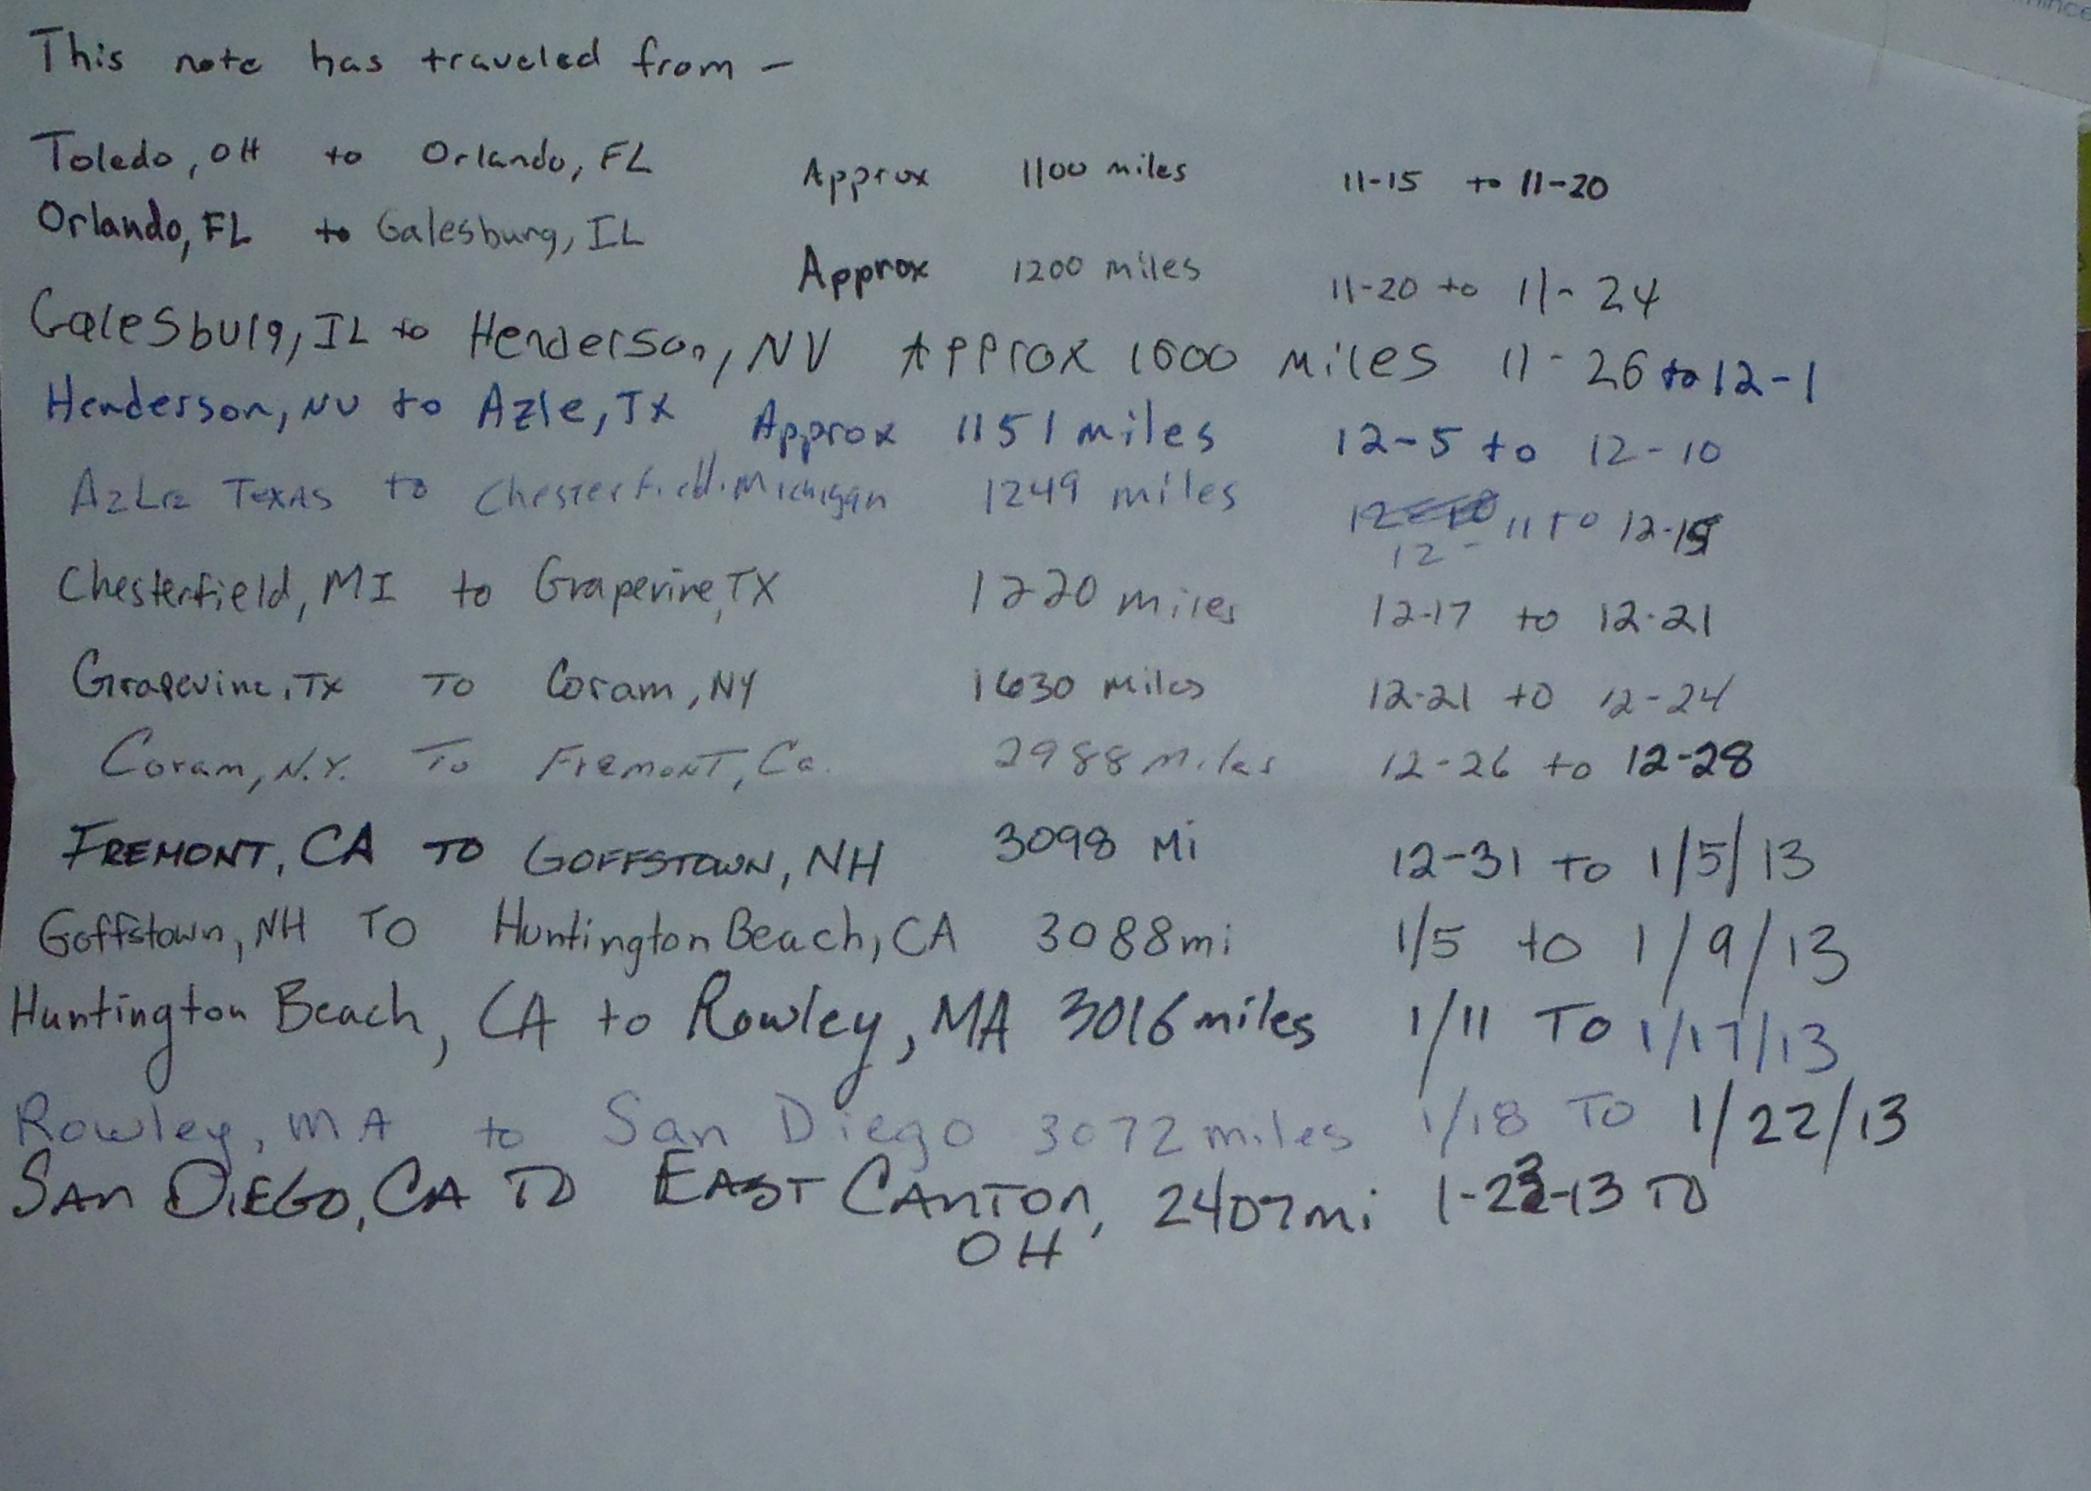 This note has traveled from -
Toledo, OH to Orlando, FL Approx 1100 miles 11-15 to 11-20
Orlando, FL to Galesburg, IL Approx 1200 miles 11-20 to 11-24
Galesburg, IL to Henderson, NV Approx 1600 miles 11-26 to 12-1
Henderson, NV to Azle, TX Approx 1151 miles 12-5 to 12-10
Azle Texas to Chesterfield, Michigan 1249 miles 12-11 to 12-15
Chesterfield, MI to Grapevine, TX 1220 miles 12-17 to 12-21
Grapevine, TX To Coram, NY 1630 miles 12-21 to 12-24
Coram, N.Y. To Fremont, Ca. 2988 miles 12-26 to 12-28
FREMONT, CA TO GOFFSTOWN, NH 3098 Mi 12-31 TO 1/5/13
Goffstown, NH TO Huntington Beach, CA 3088mi 1/5 to 1/9/13
Huntington Beach, CA to Rowley, MA 3016 miles 1/11 TO 1/17/13
Rowley, MA to San Diego 3072 miles 1/18 TO 1/22/13
SAN DIEGO, CA TO EAST CANTON, 2407mi 1-23-13 TO
OH